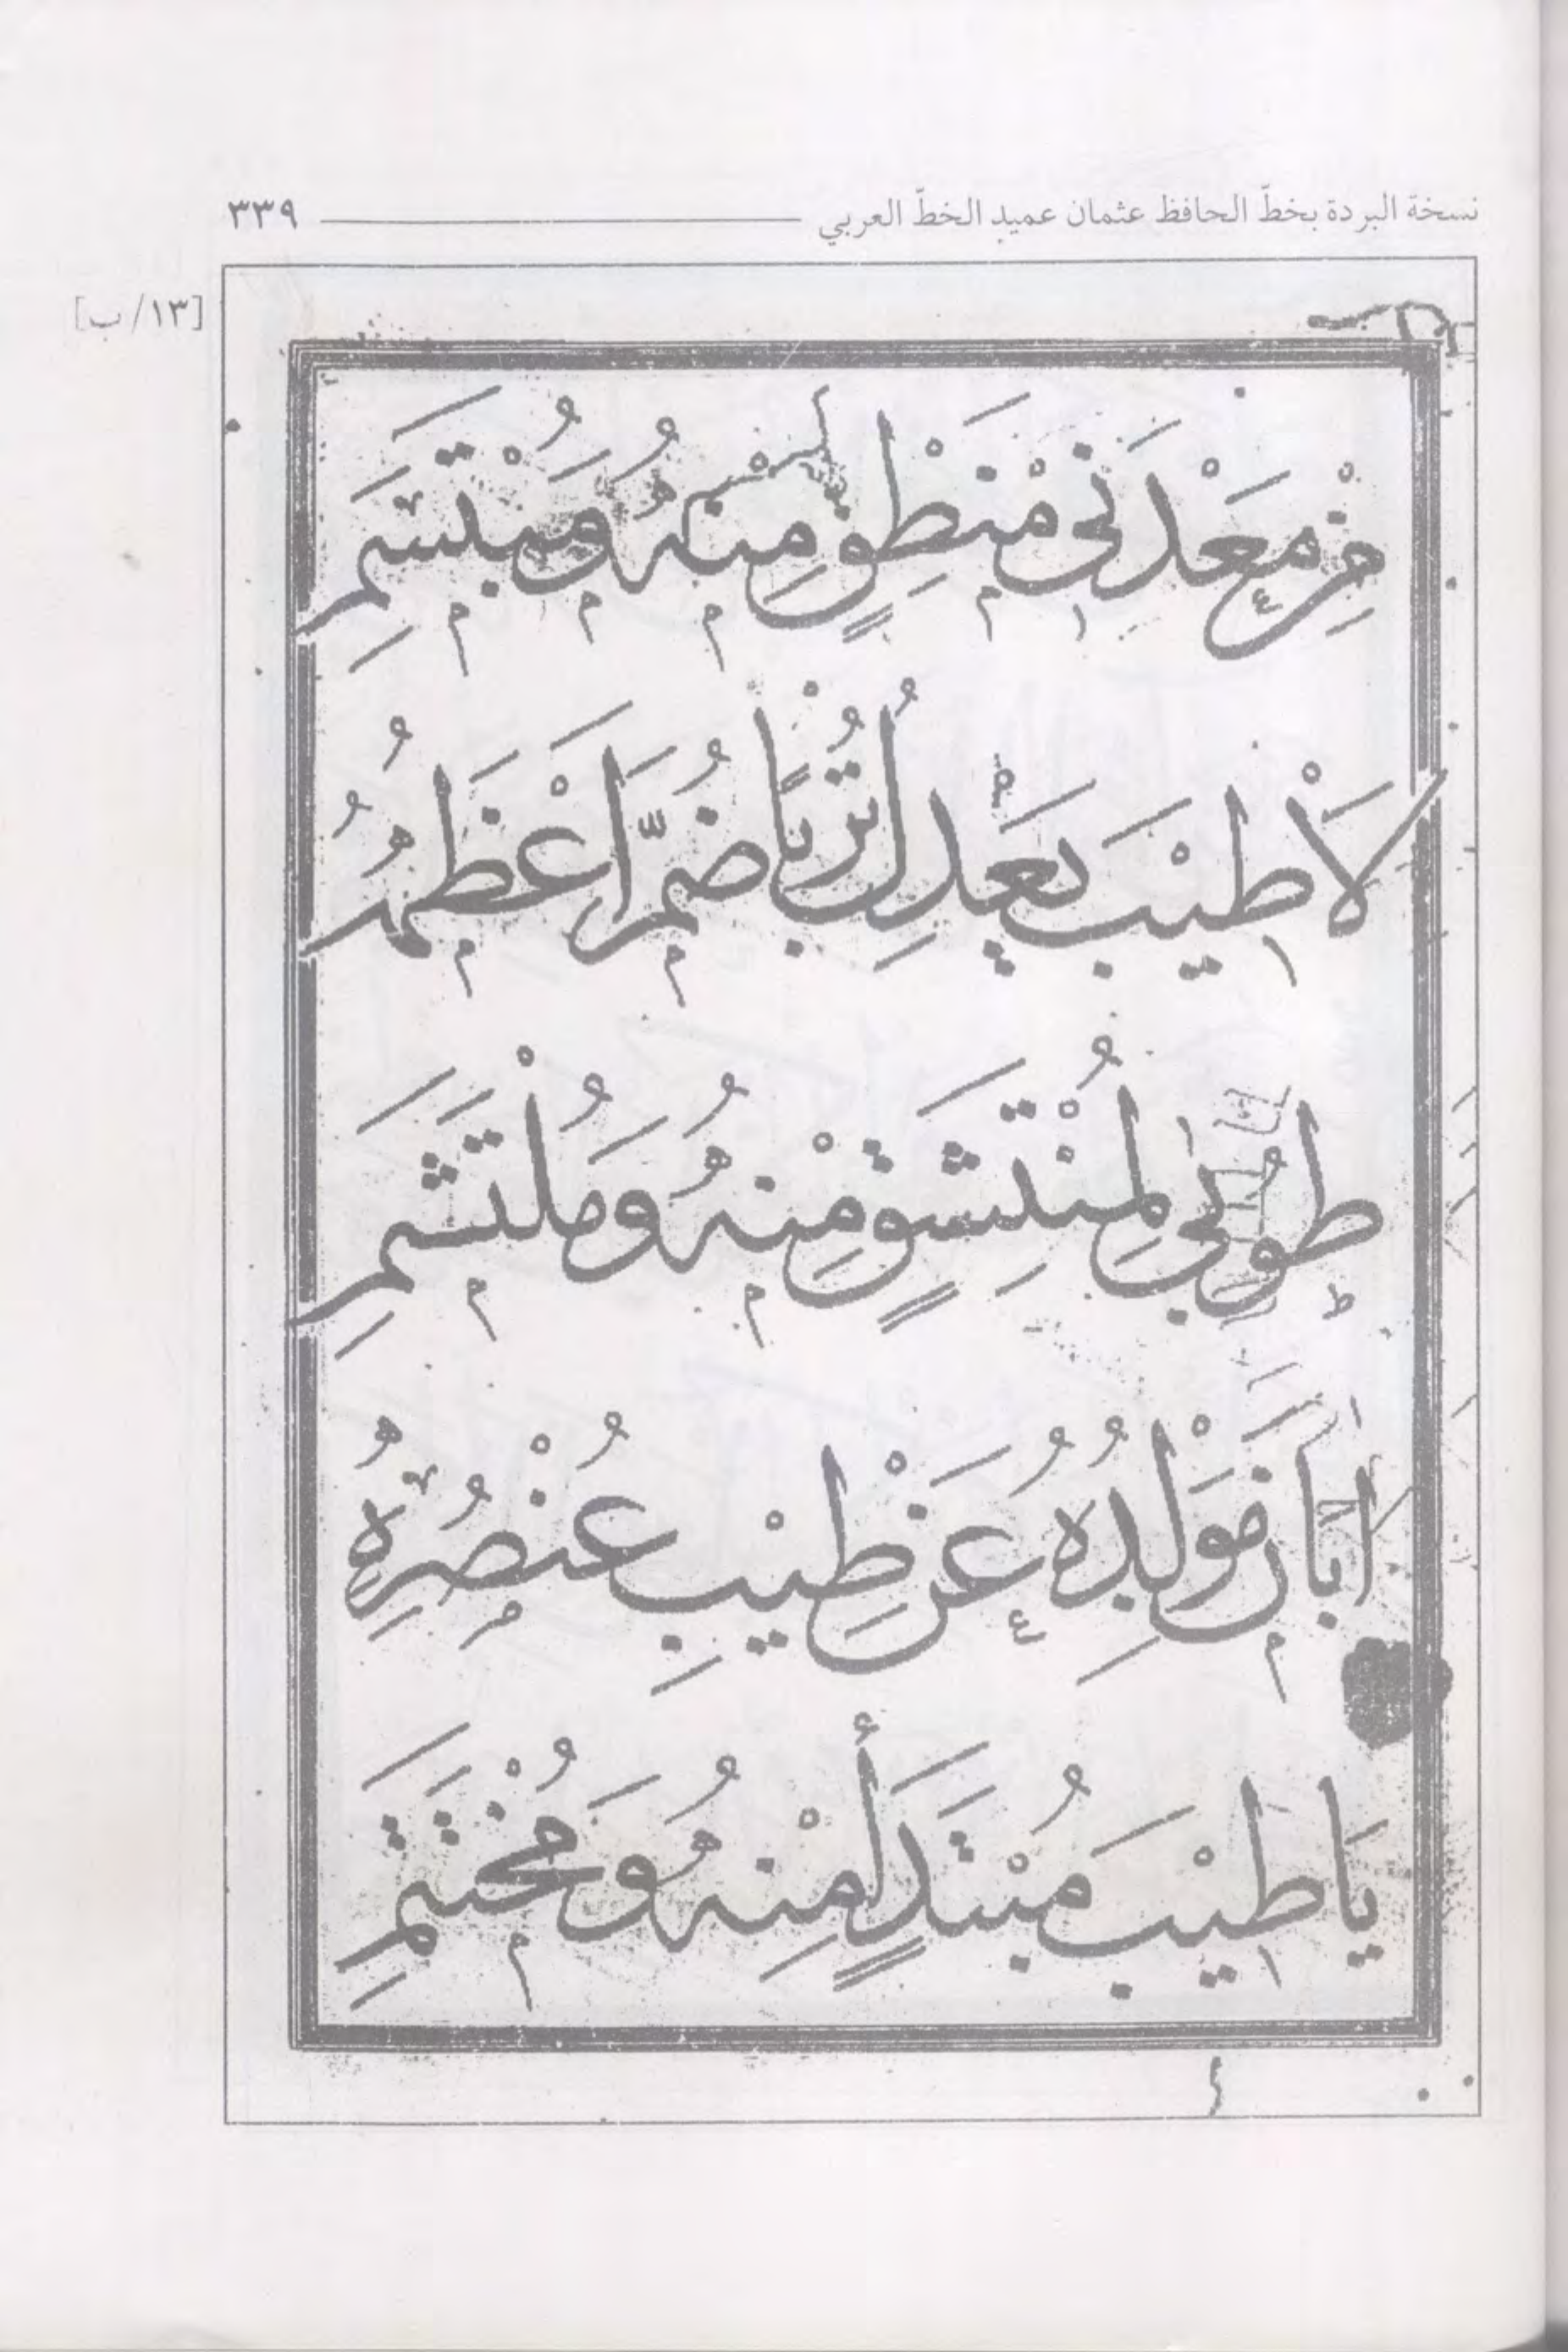 نسخة البردة بخطّ الحافظ عثمان عميد الخطّ العربي ٣٣٩
[١٣/ب]
مِنْ مَعْدَنَىْ مَنْطِقٍ مِنْهُ وَمُبْتَسَمِ
لَا طِيْبَ يَعْدِلُ تُرْبًا ضَمَّ اَعْظُمَهُ
طُوبٰى لِمُنْتَشِقٍ مِنْهُ وَمُلْتَثِمِ
اَبَانَ مَوْلِدُهُ عَنْ طِيْبِ عُنْصُرِهِ
يَا طِيْبَ مُبْتَدَإٍ مِنْهُ وَمُخْتَتَمِ